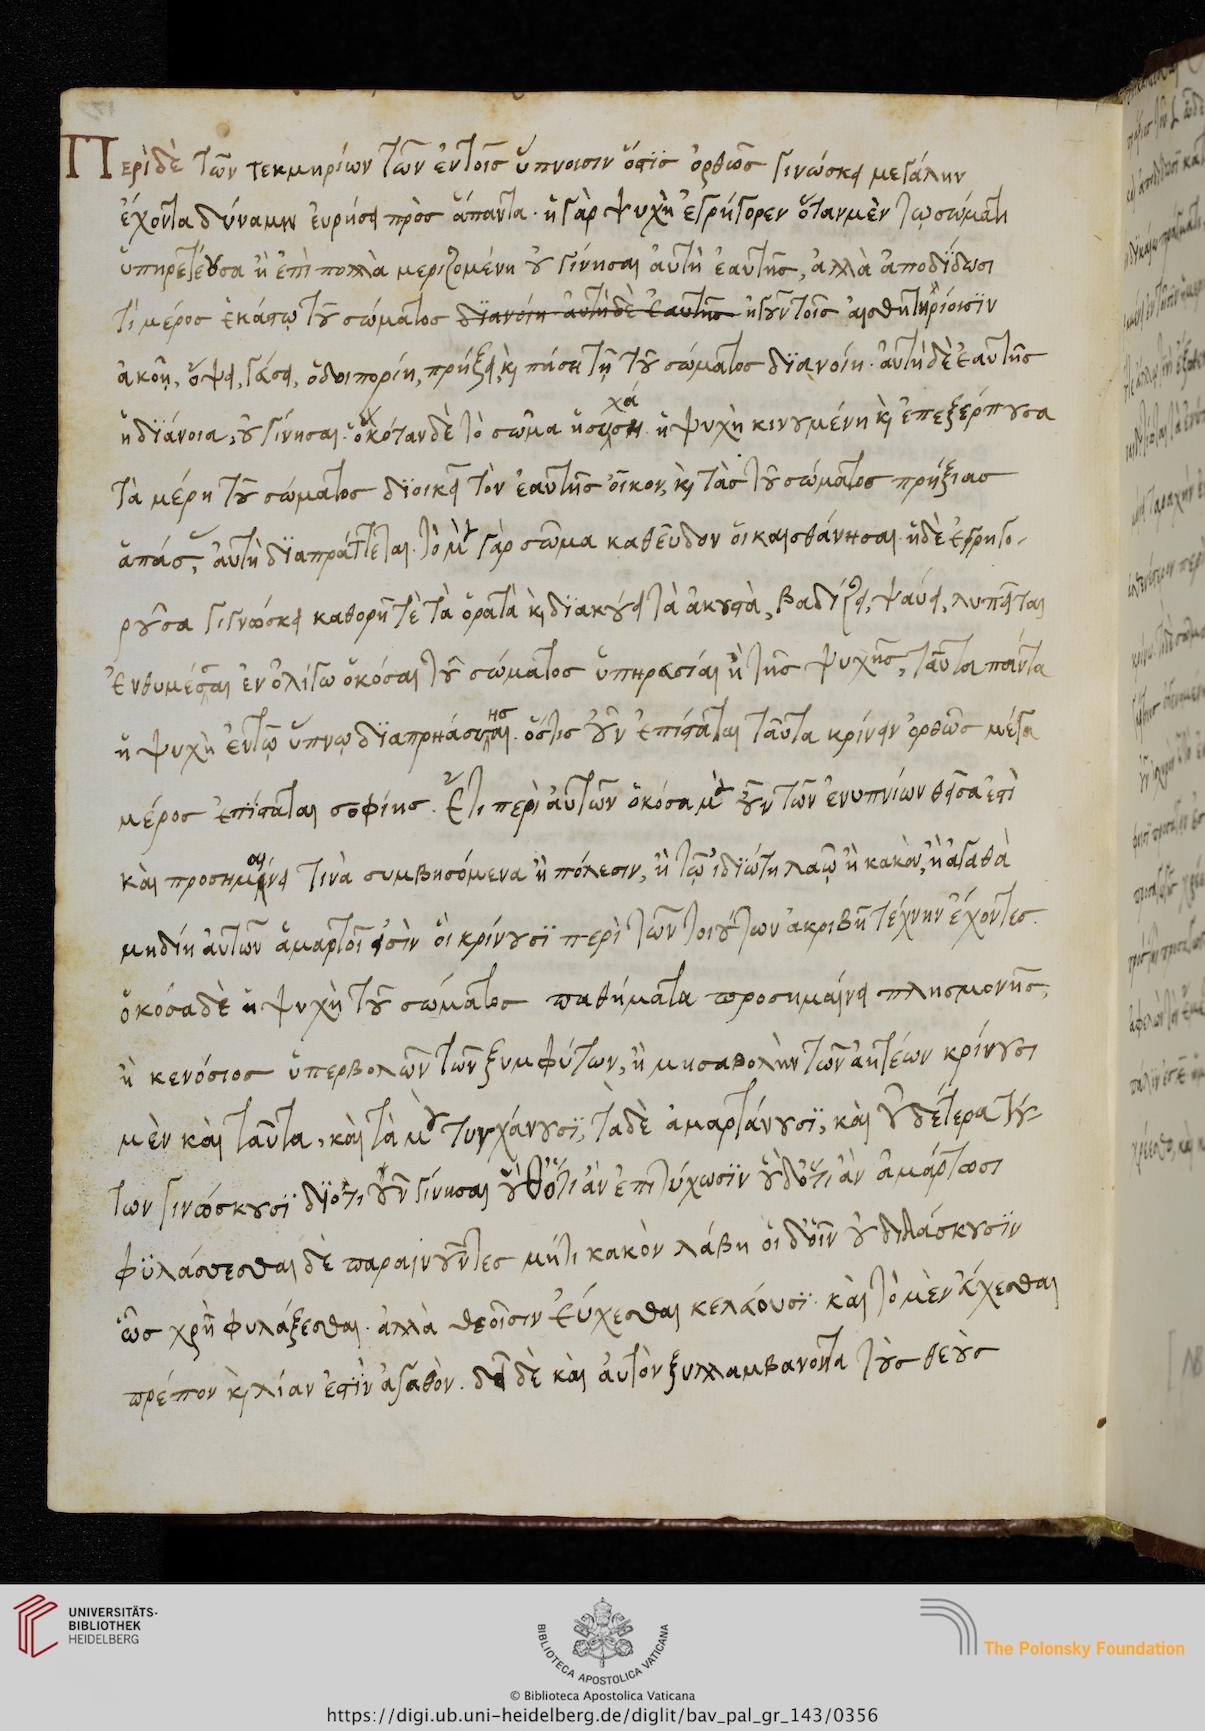 Περὶ δὲ τῶν τεκμηρίων τῶν ἐν τοῖς ὕπνοισιν ὅστις ὀρθῶς γινώσκει μεγάλην
ἔχοντα δύναμιν εὑρήσει πρὸς ἅπαντα. ἡ γὰρ ψυχὴ ἐγρήγορεν ὅταν μὲν τῳ σώματι
ὑπηρετέουσα ἢ ἐπὶ πολλὰ μεριζομένη οὐ γίνηται αὐτὴ ἑαυτῆς, ἀλλὰ ἀποδίδωσι
τὶ μέρος ἑκάστῳ τοῦ σώματος διανοίη αὐτὴ δὲ ἑαυτῆς ἤγουν τοῖς αἰσθητηρίοισϊν
ἀκοῇ, ὄψει, γεύσει, ὁδοιπορίη, πρήξει, καὶ πάσῃ τῇ τοῦ σώματος διανοίη. αὐτὴ δὲ ἑαυτῆς
ἡ διάνοια, οὐ γίνηται. ὁκόταν δὲ τὸ σῶμα ἡσυχάσῃ ἡ ψυχὴ κινουμένη καὶ ἐπεξέρπουσα
τὰ μέρη τοῦ σώματος διοικεῖ τὸν ἑαυτῆς οἶκον, καὶ τὰς τοῦ σώματος πρήξιας
ἁπάσας, αὐτὴ διαπράττεται. τὸ μὲν γὰρ σῶμα καθεῦδον οὐκ αἰσθάνηται. ἡ δὲ ἐγρηγο-
ροῦσα γιγνώσκει καθορῆ τὲ τὰ ὁρατὰ καὶ διακούει τὰ ἀκουστὰ, βαδίζει, ψαύει, λυπεῖται
ἐνθυμέεται ἐν ὀλίγω ὁκόσαι τοῦ σώματος ὑπηρεσίαι ἢ τῆς ψυχῆς, ταῦτα πάντα
ἡ ψυχὴ ἐν τῷ ὕπνῳ διαπρήσσεται. ὅστις οὖν ἐπίσταται ταῦτα κρίνειν ὀρθῶς μέγα
μέρος ἐπίσταται σοφίης. ἔτι περὶ αὐτῶν ὁκόσα μὲν οὖν τῶν ἐνυπνίων θεῖα ἐστὶ
καὶ προσημαίνει τινὰ συμβησόμενα ἢ πόλεσιν, ἢ τῷ ἰδιώτη λαῷ ἢ κακὸν, ἢ ἀγαθὰ
μηδίη αὐτῶν ἁμαρτοῖ εἰσὶν οἳ κρίνουσϊ περὶ τῶν τοιούτων ἀκριβῆ τέχνην ἔχοντες.
ὁκόσα δὲ ἡ ψυχὴ τοῦ σώματος παθήματα προσημαίνει πλησμονῆς,
ἢ κενόσιος ὑπερβολῶν τῶν ξυμφύτων, ἢ κρίνουσι
μὲν καὶ ταῦτα, καὶ τὰ μὲν τυγχάνουσϊ, τὰ δὲ ἁμαρτάνουσϊ, καὶ οὐδέτερα τού-
των γινώσκουσϊ διότι οὖν γίνηται οὔθ᾽ ὅτι ἂν ἐπιτύχωσϊν οὔδ᾽ ὅτι ἂν ἁμάρτωσι
φυλάσσεσθαι δὲ παραινοῦντες μήτι κακὸν λάβη οἱ δ᾽ οἶν οὐ διδάσκουσϊν
ὡς χρὴ φυλάξεσθαι. ἀλλὰ θεοῖσιν εὔχεσθαι κελεύουσϊ. καὶ τὸ μὲν εὔχεσθαι
πρέπον καὶ λίαν ἐστϊν ἀγαθὸν. δεῖ δὲ καὶ αὐτὸν ξυλλαμβανοντα τοὺς θεοὺς
UNIVERSITÄTS-
BIBLIOTHEK
HEIDELBERG
BIBLIOTECA APOSTOLICA VATICANA
The Polonsky Foundation
© Biblioteca Apostolica Vaticana
https://digi.ub.uni-heidelberg.de/diglit/bav_pal_gr_143/0356